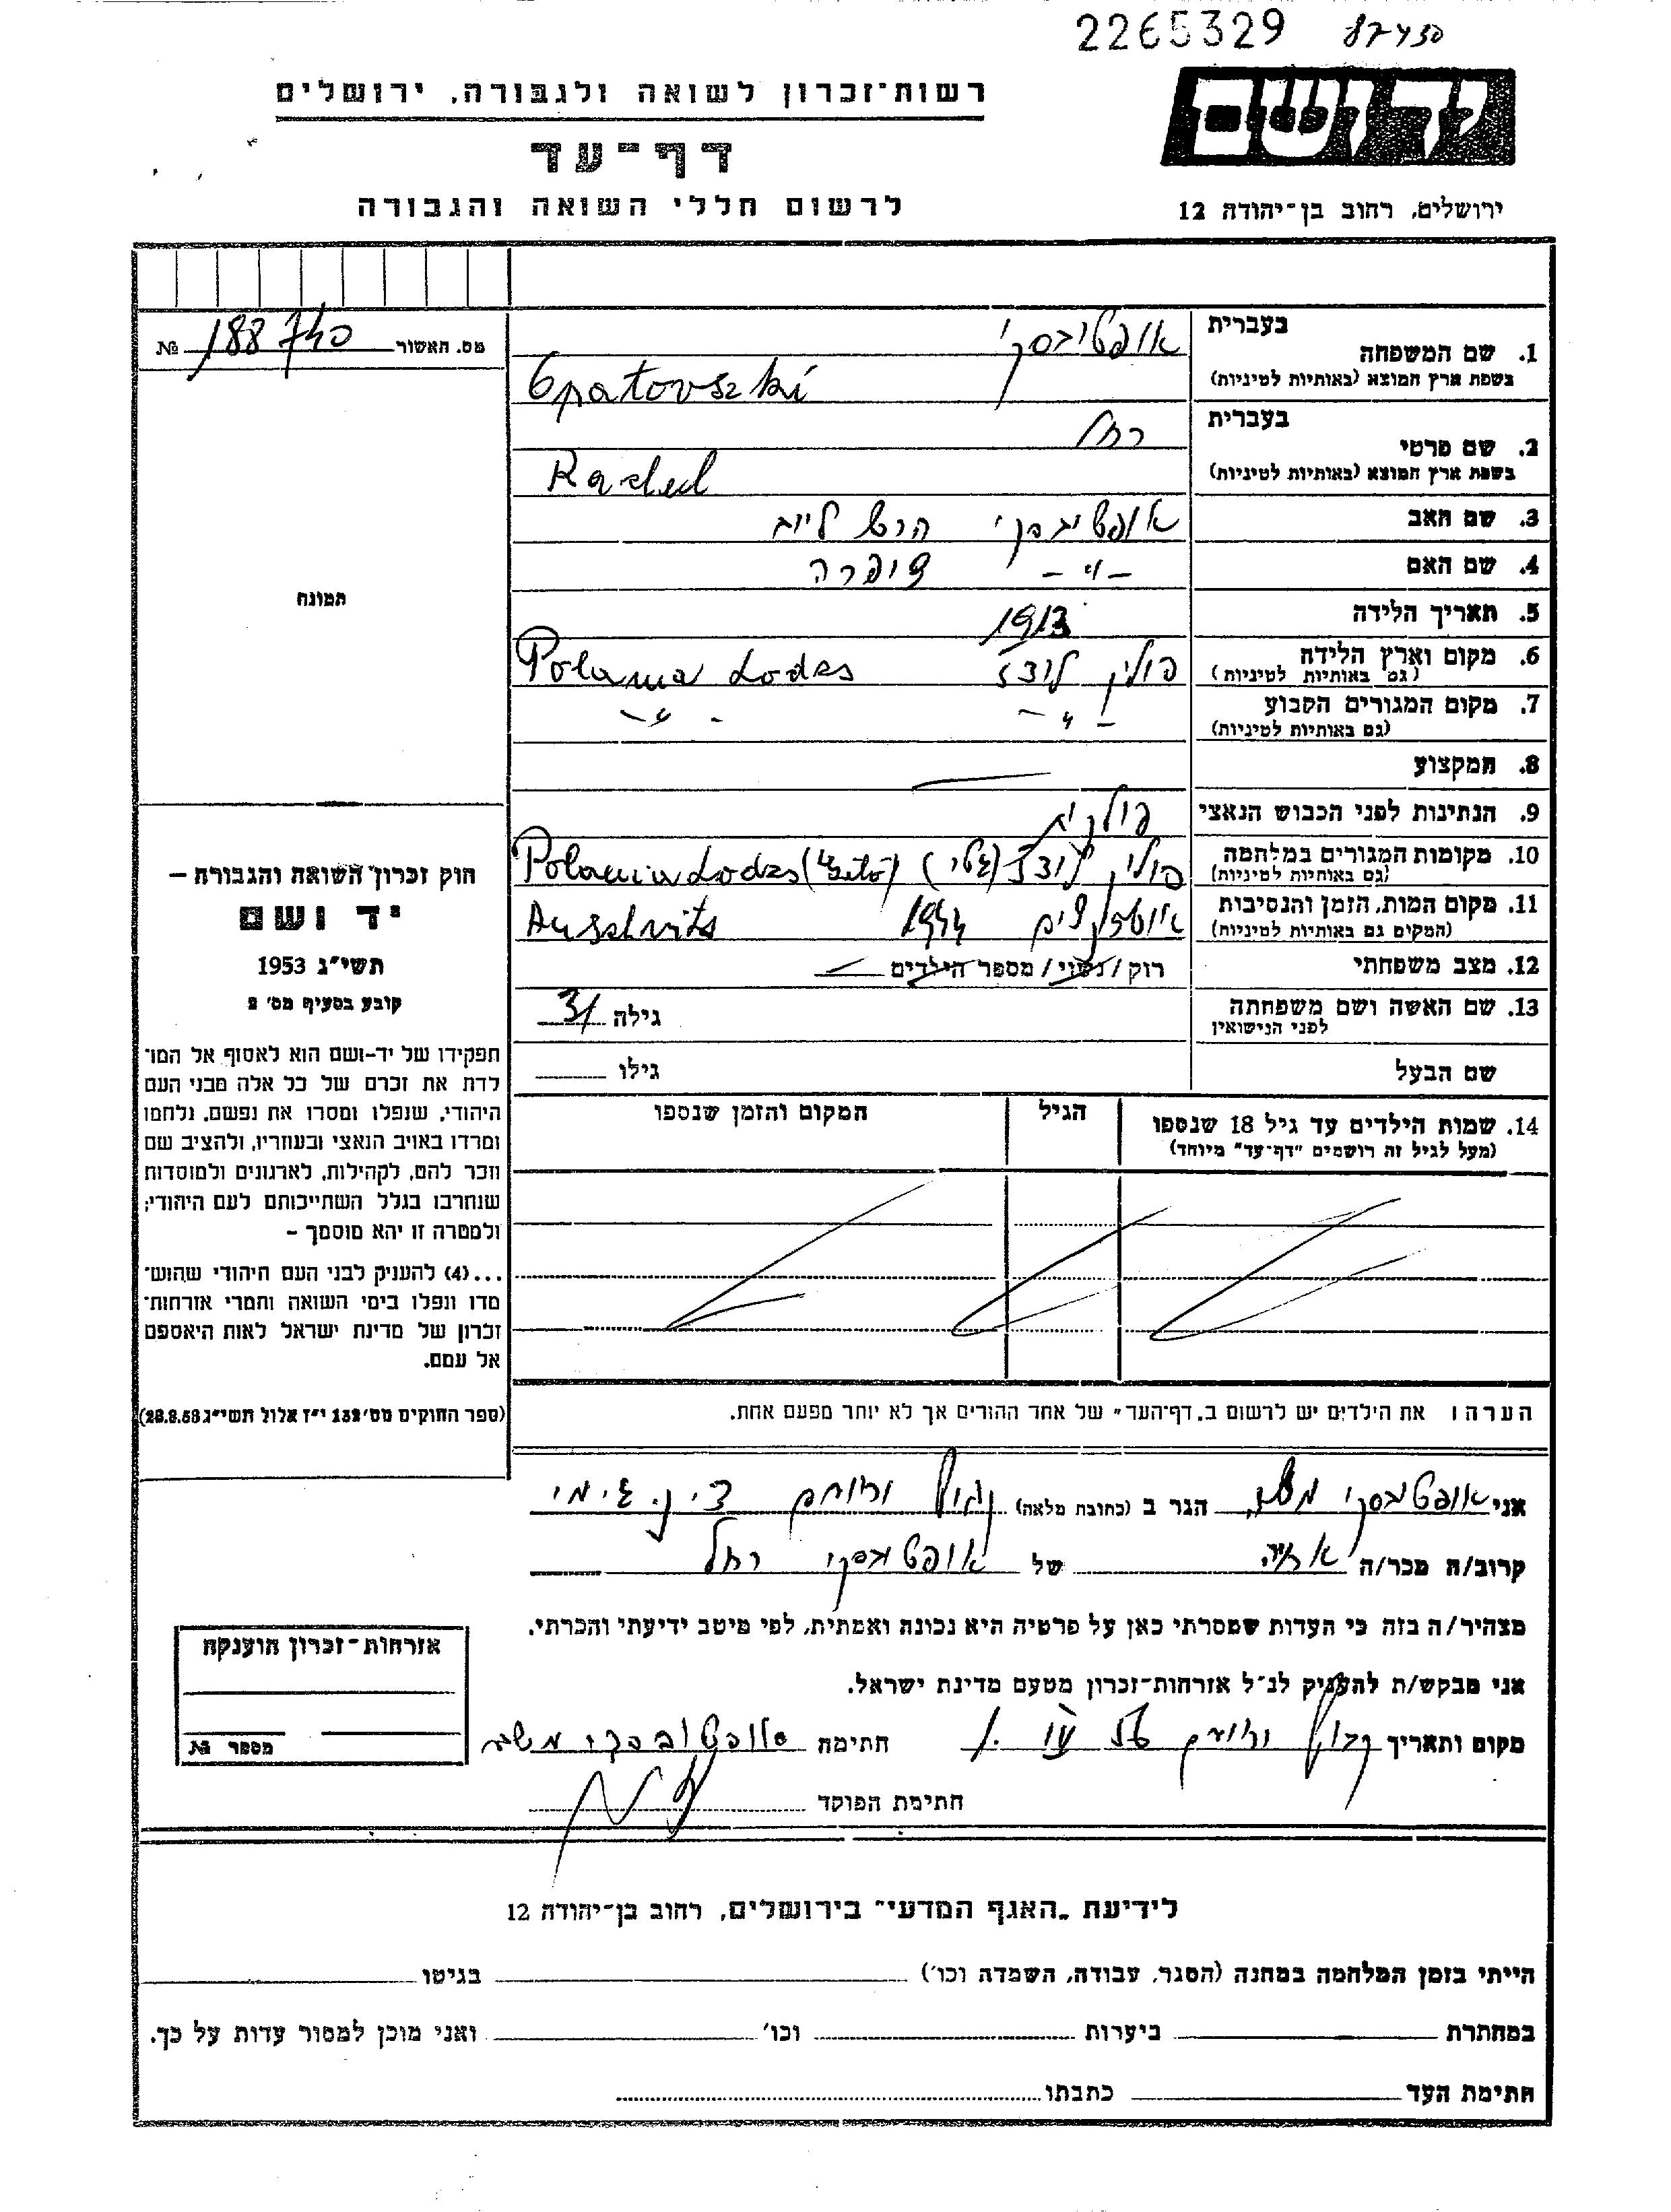 2265329 87450
רשות־זכרון לשואה ולגבורה, ירושלים
יד ושם
דף־עד
לרשום חללי השואה והגבורה
ירושלים, רחוב בן־יהודה 12
מס. האשור 188740 №
תמונה
1. שם המשפחה
בעברית אופטובסקי
בשפת ארץ המוצא (באותיות לטיניות) Opatovszki
2. שם פרטי
בעברית רחל
בשפת ארץ המוצא (באותיות לטיניות) Rachel
3. שם האב אופטובסקי הרש לייב
4. שם האם —״— שפרה
5. תאריך הלידה 1913
6. מקום וארץ הלידה פולין לודז Polania Lodzs
(גם באותיות לטיניות)
7. מקום המגורים הקבוע —״— —״—
(גם באותיות לטיניות)
8. המקצוע —
9. הנתינות לפני הכבוש הנאצי פולנית
10. מקומות המגורים במלחמה פולין לודז (גטו) Polania Lodzs
(גם באותיות לטיניות)
11. מקום המות, הזמן והנסיבות 1944 Auschvits
(המקום גם באותיות לטיניות)
12. מצב משפחתי רוק/נשוי/מספר הילדים —
13. שם האשה ושם משפחתה גילה 31
לפני הנישואין
שם הבעל גילו
14. שמות הילדים עד גיל 18 שנספו הגיל המקום והזמן שנספו
(מעל לגיל זה רושמים "דף־עד" מיוחד)
חוק זכרון השואה והגבורה –
יד ושם
תשי"ג 1953
קובע בסעיף מס׳ 2
תפקידו של יד-ושם הוא לאסוף אל המו־
לדת את זכרם של כל אלה מבני העם
היהודי, שנפלו ומסרו את נפשם, נלחמו
ומרדו באויב הנאצי ובעוזריו, ולהציב שם
וזכר להם, לקהילות, לארגונים ולמוסדות
שנחרבו בגלל השתייכותם לעם היהודי;
ולמטרה זו יהא מוסמך –
...(4) להעניק לבני העם היהודי שהוש־
מדו ונפלו בימי השואה והמרי אזרחות־
זכרון של מדינת ישראל לאות היאספם
אל עמם.
(ספר החוקים מס׳ 132 י"ז אלול תשי"ג 28.8.53)
הערה: את הילדים יש לרשום ב„דף־העד" של אחד ההורים אך לא יותר מפעם אחת.
אני אופטובסקי משה הגר ב (כתובת מלאה)
קרוב/ה מכר/ה של אופטובסקי רחל
מצהיר/ה בזה כי העדות שמסרתי כאן על פרטיה היא נכונה ואמתית, לפי מיטב ידיעתי והכרתי.
אני מבקש/ת להעניק לנ"ל אזרחות־זכרון מטעם מדינת ישראל.
מקום ותאריך חתימה אופטובסקי משה
חתימת הפוקד
אזרחות־זכרון הוענקה
מספר №
לידיעת „האגף המדעי" בירושלים, רחוב בן־יהודה 12
הייתי בזמן המלחמה במחנה (הסגר, עבודה, השמדה וכו׳) בגיטו
במחתרת ביערות וכו׳ ואני מוכן למסור עדות על כך.
חתימת העד כתבתו